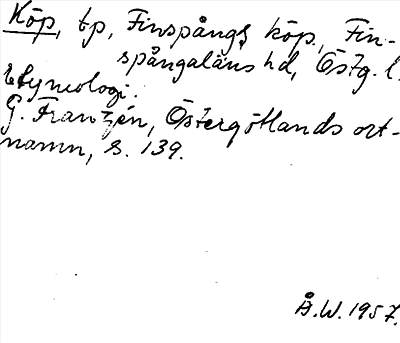 Köp, tp, Finspångs köp., Fin-
spångaläns hd, Östg. l.
Etymologi.
G. Franzén, Östergötlands ort-
namn, s. 139.
Å.W. 1957.